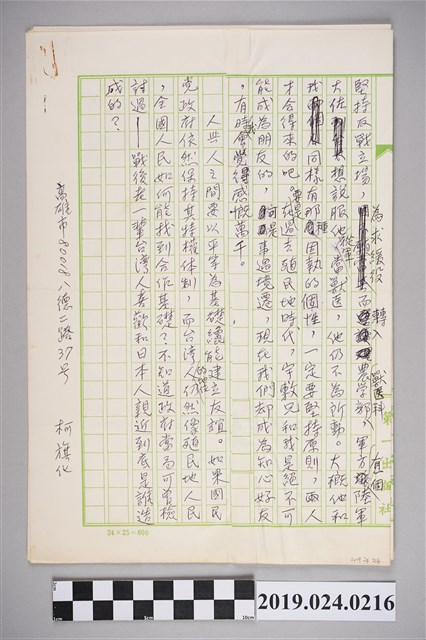 堅持反戰立場，為求緩役而轉入農学部獸医科，軍方有一個陸軍
大佐想說服他從軍當獸医，他仍不為所動。大概他和
我同樣有那種固執的個性，一定要堅持原則，兩人
才会得來的吧。要是在過去殖民地時代，宇敷兄和我是絕不可
能成為朋友的，可是事過境遷，現在我們却成為知心好友
，有時我會覺得感慨萬千。
人與人之間要以平等為基礎纔能建立友誼。如果國民
党政府依然保持其特權体制，而台湾人的處境仍然像殖民地人民
，全國人民如何能找到合作基礎？不知道政府當局可曾檢
討過——戰後老一輩台湾人喜歡和日本人親近到底是誰造
成的？
高雄市80028八德二路37号 柯旗化
24×25=600
2019.024.0216